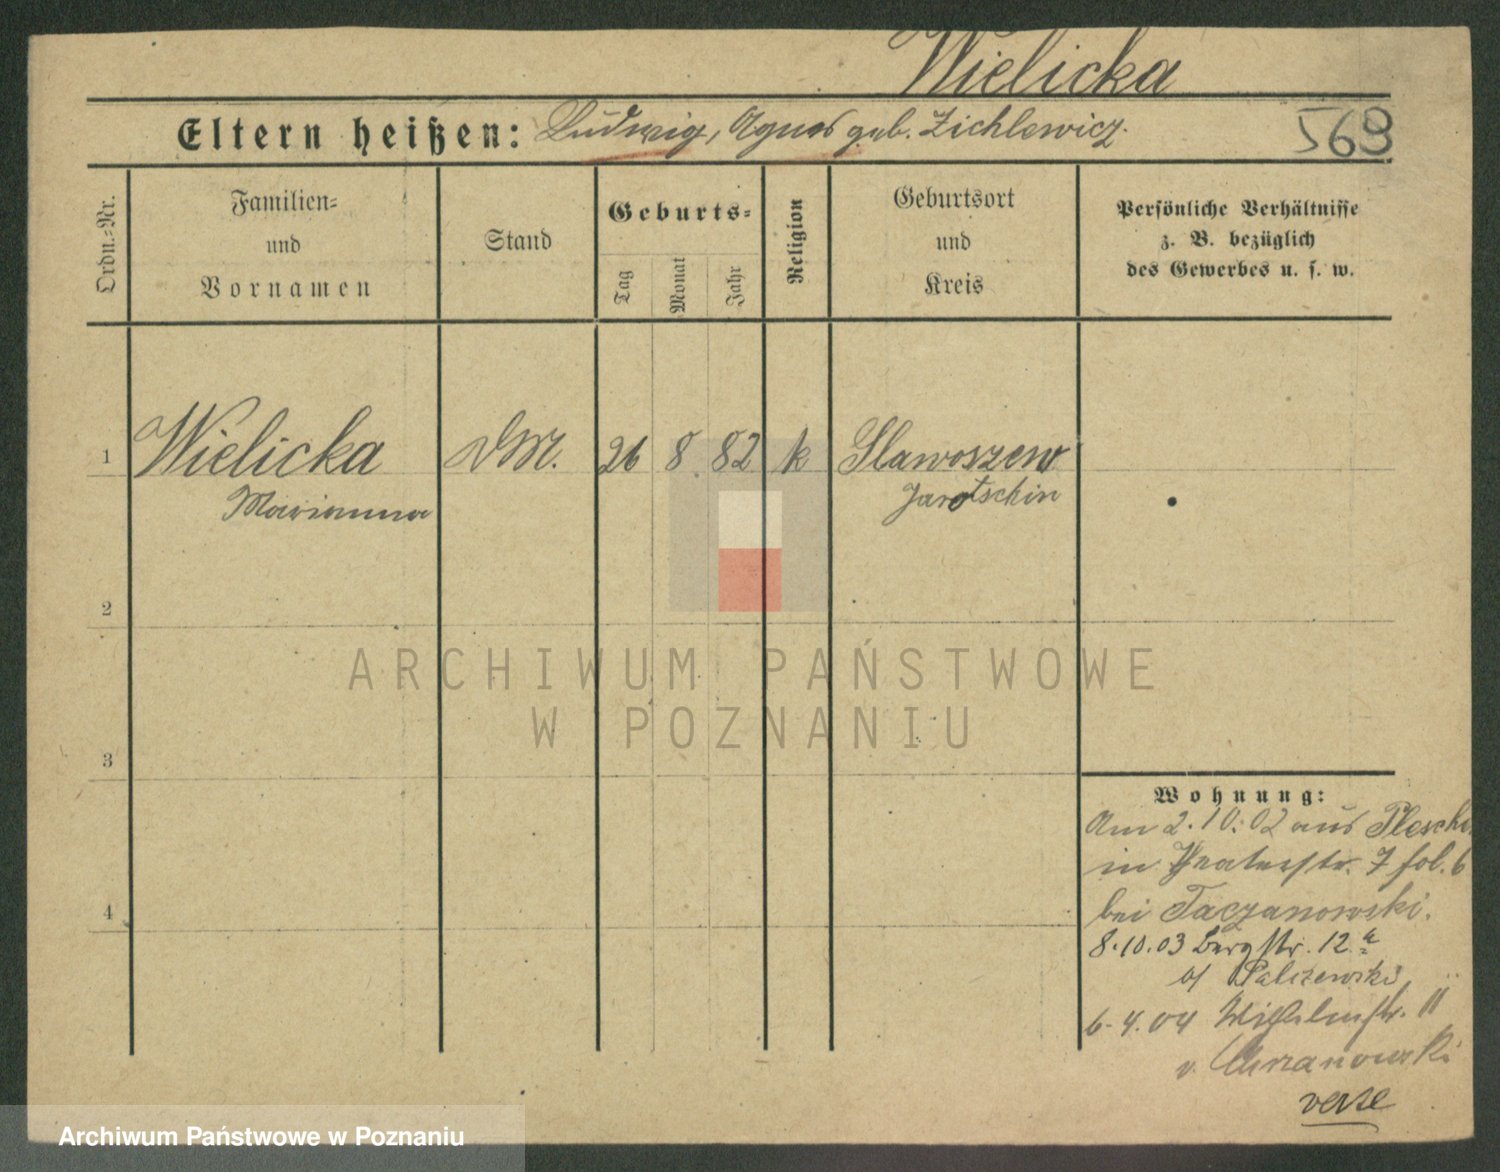 Wielicka
Eltern heißen: Ludwig, Agnes geb. Zichlewicz.
569
Ordn.-Nr.
Familien-
und
Vornamen
Stand
Geburts-
Tag
Monat
Jahr
Religion
Geburtsort
und
Kreis
Persönliche Verhältnisse
z. B. bezüglich
des Gewerbes u. s. w.
1 Wielicka DM. 26 8 82 k Slawoszew
Marianna Jarotschin
2
ARCHIWUM PAŃSTWOWE
W POZNANIU
3
4
Wohnung:
Am 2.10.02 aus Plesch
in Theaterstr. 7 fol. 6
bei Taczanowski.
8.10.03 Bergstr. 12 a
b/ Palczewski
6.4.04 Wilhelmstr. 11
v. Chrzanowski
verte
Archiwum Państwowe w Poznaniu